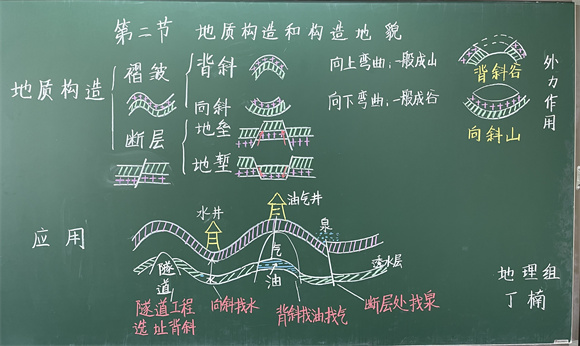 第二节 地质构造和构造地貌
地质构造
褶皱
背斜
向上弯曲，一般成山
背斜谷
向斜
向下弯曲，一般成谷
向斜山
外力作用
断层
地垒
地堑
应用
水井
油气井
泉
隧道
气
油
透水层
隧道工程
选址背斜
向斜找水
背斜找油找气
断层处找泉
地理组
丁楠